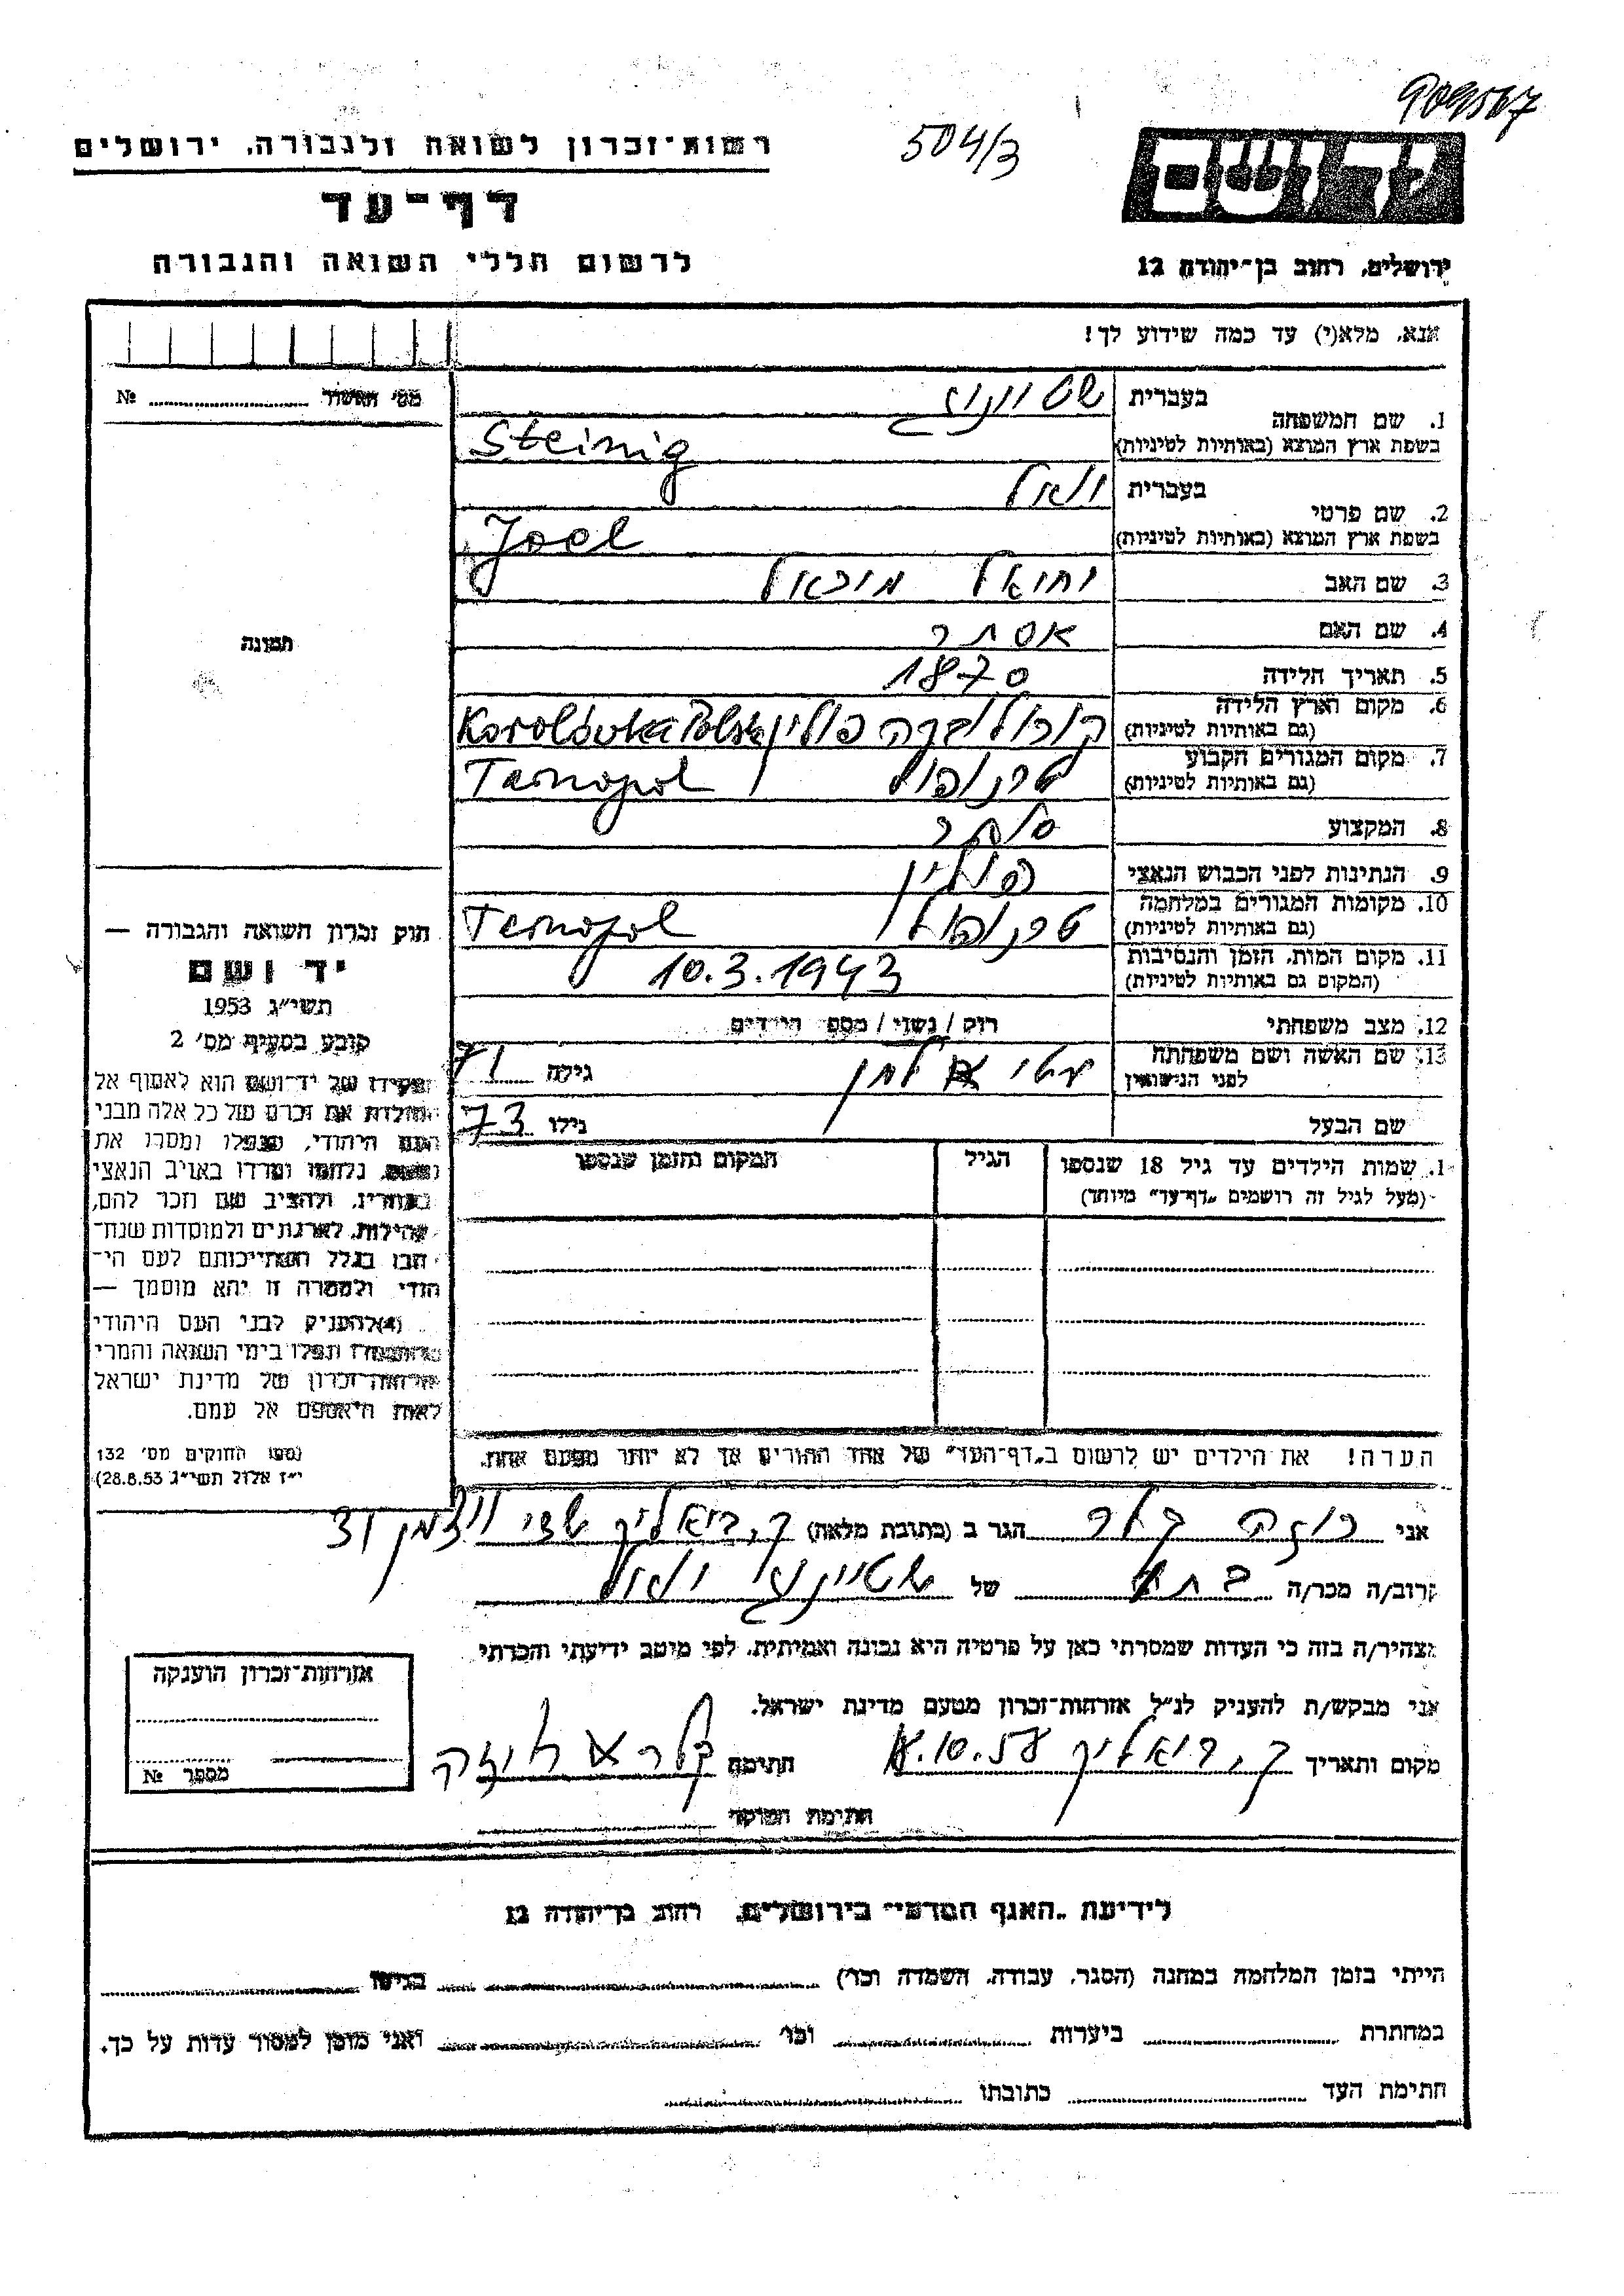 909567
504/3
רשות-זכרון לשואה ולגבורה, ירושלים
דף-עד
לרשום חללי השואה והגבורה
יד ושם
ירושלים, רחוב בן-יהודה 12
אנא, מלא(י) עד כמה שידוע לך!
מס' האשור № 
1. שם המשפחה בעברית שטיינוג
בשפת ארץ המוצא (באותיות לטיניות) Steinig
2. שם פרטי בעברית יואל
בשפת ארץ המוצא (באותיות לטיניות) Joel
3. שם האב יחיאל מיכאל
4. שם האם אסתר
5. תאריך הלידה 1870
6. מקום וארץ הלידה (גם באותיות לטיניות) קורולובקה פולין Korolówka Polska
7. מקום המגורים הקבוע (גם באותיות לטיניות) טרנופול Tarnopol
8. המקצוע סוחר
9. הנתינות לפני הכבוש הנאצי פולין
10. מקומות המגורים במלחמה (גם באותיות לטיניות) טרנופול Tarnopol
11. מקום המות, הזמן והנסיבות (המקום גם באותיות לטיניות) 10.3.1943
12. מצב משפחתי רוק / נשוי / מספר הילדים
13. שם האשה ושם משפחתה לפני הנישואין גילה 71
שם הבעל גילו 73
שמות הילדים עד גיל 18 שנספו
(מעל לגיל זה רושמים "דף-עד" מיוחד)
הגיל
המקום והזמן שנספו
תמונה
חוק זכרון השואה והגבורה —
יד ושם
תשי"ג 1953
קובע בסעיף מס' 2
תפקידו של יד-ושם הוא לאסוף אל
המולדת את זכרם של כל אלה מבני
העם היהודי, שנפלו ומסרו את
נפשם, נלחמו ומרדו באויב הנאצי
בעוזריו, ולהציב שם וזכר להם,
לקהילות, לארגונים ולמוסדות שנח-
רבו בגלל השתייכותם לעם הי-
הודי ולמטרה זו יהא מוסמך —
(4) להעניק לבני העם היהודי
שהושמדו ונפלו בימי השואה והמרי
אזרחות-זכרון של מדינת ישראל
לאות היאספם אל עמם.
(ספר החוקים מס' 132
י"ז אלול תשי"ג 28.8.53)
הערה! את הילדים יש לרשום ב"דף-העד" של אחד ההורים אך לא יותר מפעם אחת.
אני רוזה קלר הגר ב (כתובת מלאה) ק. ביאליק
קרוב/ה מכר/ה בתו של שטייניג יואל
מצהיר/ה בזה כי העדות שמסרתי כאן על פרטיה היא נכונה ואמיתית, לפי מיטב ידיעתי והכרתי
אני מבקש/ת להעניק לנ"ל אזרחות-זכרון מטעם מדינת ישראל.
מקום ותאריך ק. ביאליק 10.58 חתימה קלרא רוזה
חתימת הפוקד
אזרחות-זכרון הוענקה
מספר №
לידיעת "האגף המדעי" בירושלים, רחוב בן-יהודה 12
הייתי בזמן המלחמה במחנה (הסגר, עבודה, השמדה וכו') בגיטו
במחתרת ביערות וכו' ואני מוכן למסור עדות על כך.
חתימת העד כתובתו